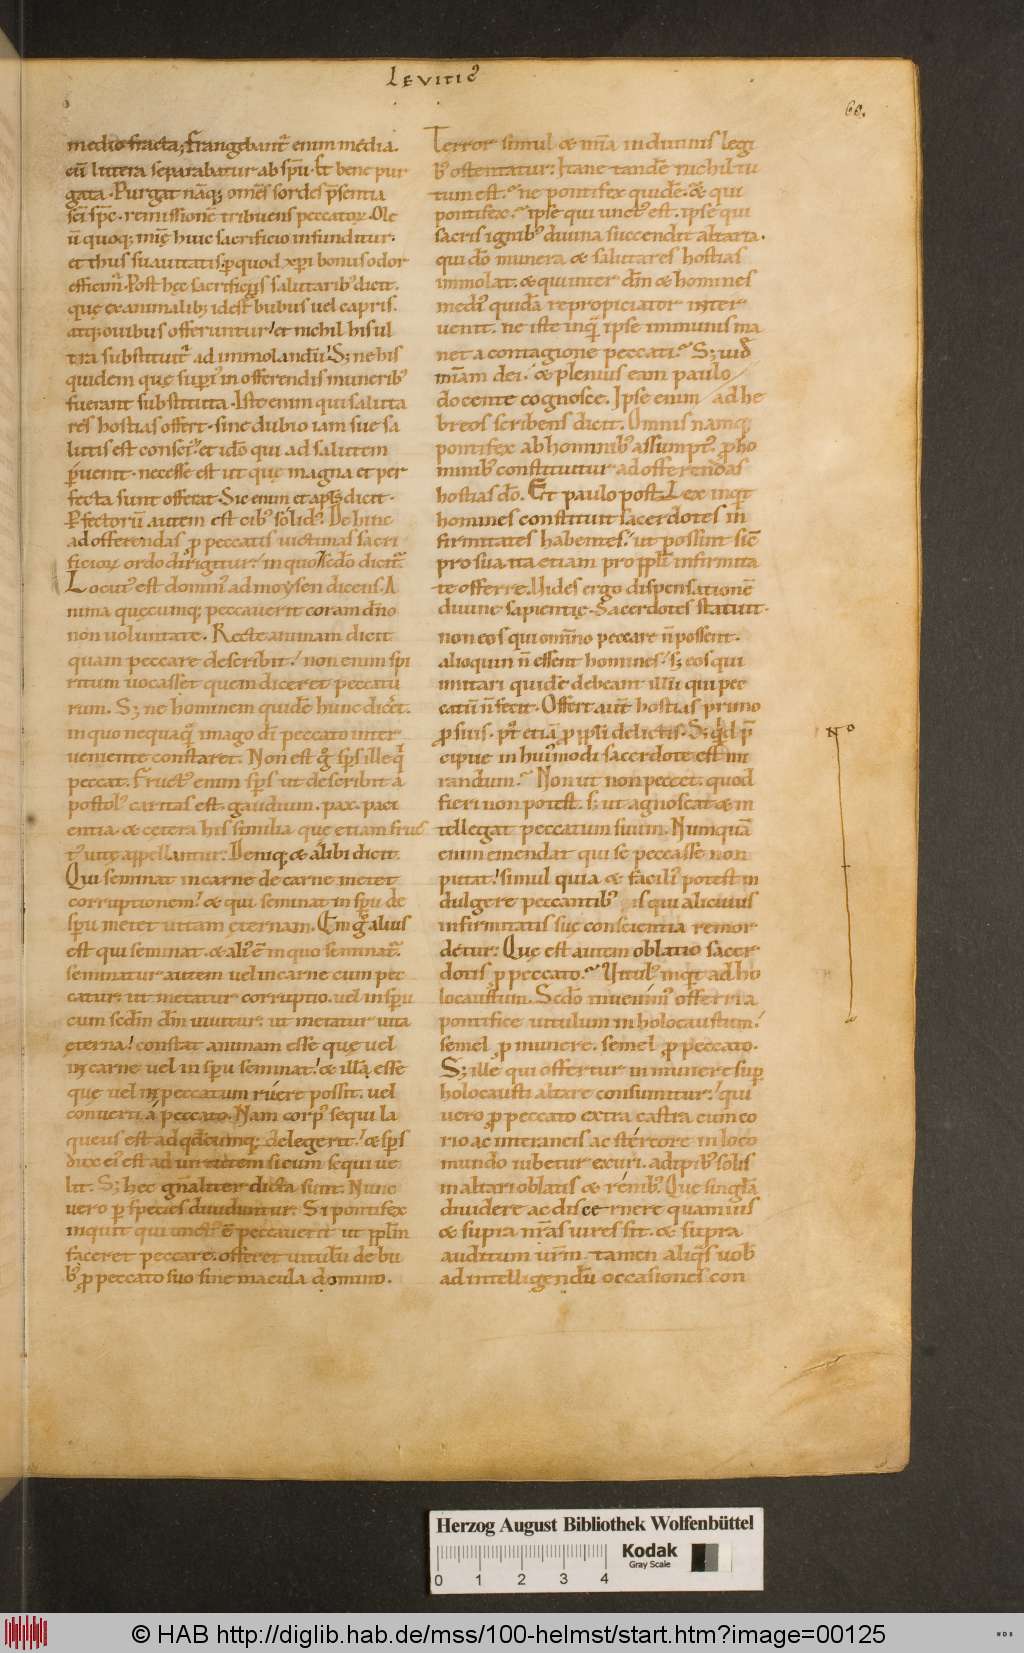 Leviticꝰ
60.
medio fracta; Frangebant᷑ enim média.
cū littera separabatur ab sp̄u. Et bene pur
gata. Purgat nāq; om̄es sordes p̄sentia
sc̄i sp̄c. remissionē tribuens peccatoꝝ. Ole
ū quoq; mīę huic sacrificio infunditur.
et thus suauitatis. ꝑ quod xp̄i bonus odor
efficim᷑. Post hęc sacrificiis salutaribꝰ dicit.
quę ex animalib; id est bubus uel capris.
atq; ouibus offeruntur. et nichil his ul
tra substituit᷑ ad immolandū. S; ne his
quidem quę supiꝰ in offerendis muneribꝰ
fuerant substituta. Iste enim qui saluta
res hostias offert. sine dubio iam sue sa
lutis est consciꝰ. et idō qui ad salutem
ꝑuenit. necesse est ut quę magna et per
fecta sunt offerat. Sic enim et apłs dicit.
Perfectorū autem est cibꝰ solidꝰ. De hinc
ad offerendas pro peccatis uictimas sacri
ficioꝝ ordo dirigitur. in quo secdō dicit᷑.
Locutꝰ est dominꝰ ad moysen dicens. A
nima quęcumq; peccauerit coram dn̄o
non uoluntate. Recte animam dicit
quam peccare describit. non enim spi
ritum uocasset quem diceret peccatu
rum. S; ne hominem quidē hunc dicit.
in quo nequaq̄ imago di᷑ peccato inter
ueniente constaret. Non est g̊ sps ille q̇
peccat. Fructꝰ enim sps ut describit a
postolꝰ caritas est. gaudium. pax. paci
entia. & cetera his similia quę etiam fruc
tꝰ uitę appellantur. Denique & alibi dicit.
Qui seminat in carne de carne metet
corruptionem. & qui seminat in sp̄u de
sp̄u metet uitam ęternam. Cui g̊ alius
est qui seminat. & aliꝰ ē in quo seminat᷑.
seminatur autem uel in carne cum pec
catur. ut metatur corruptio. uel in sp̄u
cum scdm dm̄ uiuitur. ut metatur uita
ęterna. constat animam esse quę uel
in carne uel in sp̄u seminat. & illā esse
que uel in peccatum ruere possit. uel
conuerti á peccato. Nam corpꝰ sequi la
queus est ad qdcumq; delegerit. & sps
dux eiꝰ est ad uirtutem si eum sequi ue
lit. S; hec gn̄aliter dicta sunt. Nunc
uero per species diuiduntur. Si pontifex
inquit qui unctꝰ ē peccauerit ut pplm̄
faceret peccare. offeret uitulū de bu
bꝰ ꝓ peccato suo sine macula domino.
Terror simul & mīa in diuinis legi
bꝰ ostentatur. Itane tandē nichil tu
tum est. ne pontifex quidē. & qui
pontifex. ipse qui unctꝰ est. ipse qui
sacris ignibꝰ diuina succendit altaria.
qui do munera & salutares hostias
immolat. & qui inter dm̄ & homines
mediꝰ quidā repropiciator inter
uenit. ne iste inq̄ ipse immunis ma
net a contagione peccati. S; uidē
mīam dei. & plenius eam paulo
docente cognosce. Ipse enim ad he
breos scribens dicit. Omnis namq;
pontifex ab hominibꝰ assumptꝰ. pro ho
minibꝰ constituitur ad offerendas
hostias do. Et paulo post. Lex inquit
homines constituit sacerdotes in
firmitates habentes. ut possint sicē
pro sua ita etiam pro ppłi infirmita
te offerre. Uides ergo dispensationē
diuinę sapientię. Sacerdotes statuit.
non eos qui omīno peccare ñ possent.
alioquin ñ essent homines. s; eos qui
imitari quidē debeant illū qui pec
catū ñ fecit. Offert aut̄ hostias primo
pro suis. pt᷑ etiā pro ppłi delictis. S; qd p̄
cipue in huiꝰmodi sacerdote est mi
randum. Non ut non peccet. quod
fieri non potest. s; ut agnoscat & in
tellegat peccatum suum. Nunquā
enim emendat qui se peccasse non
putat. simul quia & faciliꝰ potest in
dulgere peccantibꝰ is qui alicuius
infirmitatis suę conscientia remor
detur. Quę est autem oblatio sacer
dotis pro peccato. Uitulꝰ inquit ad ho
locaustum. Secdō inuenimꝰ offerri a
pontifice uitulum in holocaustum.
semel pro munere. semel pro peccato.
S; ille qui offertur in munere sup
holocausti altare consumitur. qui
uero pro peccato extra castra cum co
rio ac intrancis ac stercore in loco
mundo iubetur exuri. adipibꝰ solis
in altari oblatis & renibꝰ. Que singl̄a
diuidere ac discernere quamuis
& supra nr̄as uires sit. & supra
auditum ur̄m. tamen aliq̄s uobꝰ
ad intelligendū occasiones con
No
Herzog August Bibliothek Wolfenbüttel
Kodak
Gray Scale
0 1 2 3 4
© HAB http://diglib.hab.de/mss/100-helmst/start.htm?image=00125
HAB